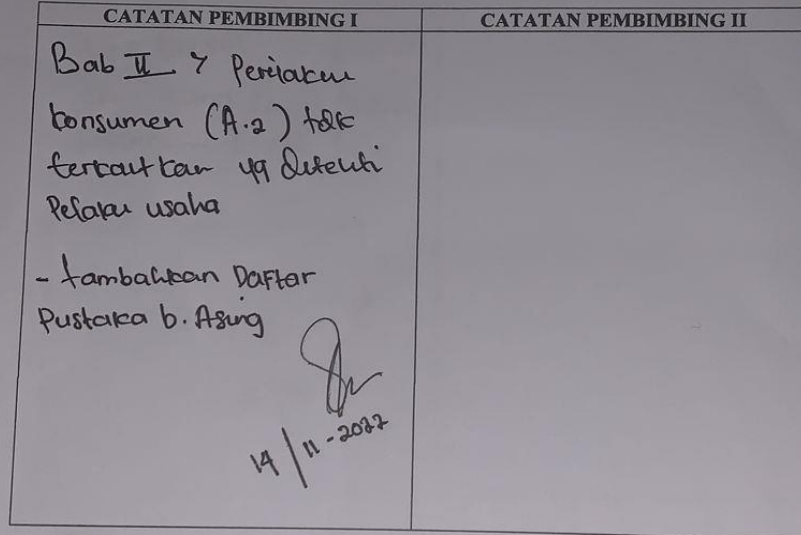 CATATAN PEMBIMBING I
CATATAN PEMBIMBING II
Bab II > Perilaku
konsumen (A.2) tdk
terkait kan yg diteliti
Pelaku usaha
- tambahkan Daftar
Pustaka b. Asing
14/11-2022